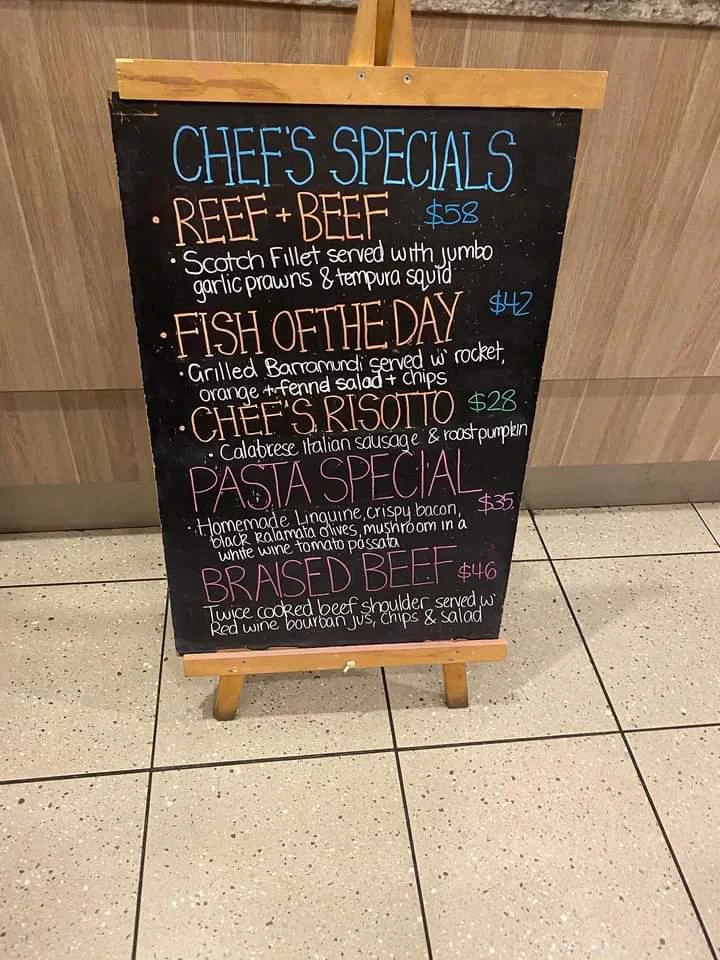 CHEF'S SPECIALS
• REEF + BEEF $58
• Scotch Fillet served with jumbo
garlic prawns & tempura squid
• FISH OF THE DAY $42
• Grilled Barramundi served w' rocket,
orange + fennel salad + chips
• CHEF'S RISOTTO $28
• Calabrese Italian sausage & roast pumpkin
PASTA SPECIAL $35
• Homemade Linguine, crispy bacon,
black kalamata olives, mushroom in a
white wine tomato passata
BRAISED BEEF $46
Twice cooked beef shoulder served w'
Red wine bourban jus, chips & salad